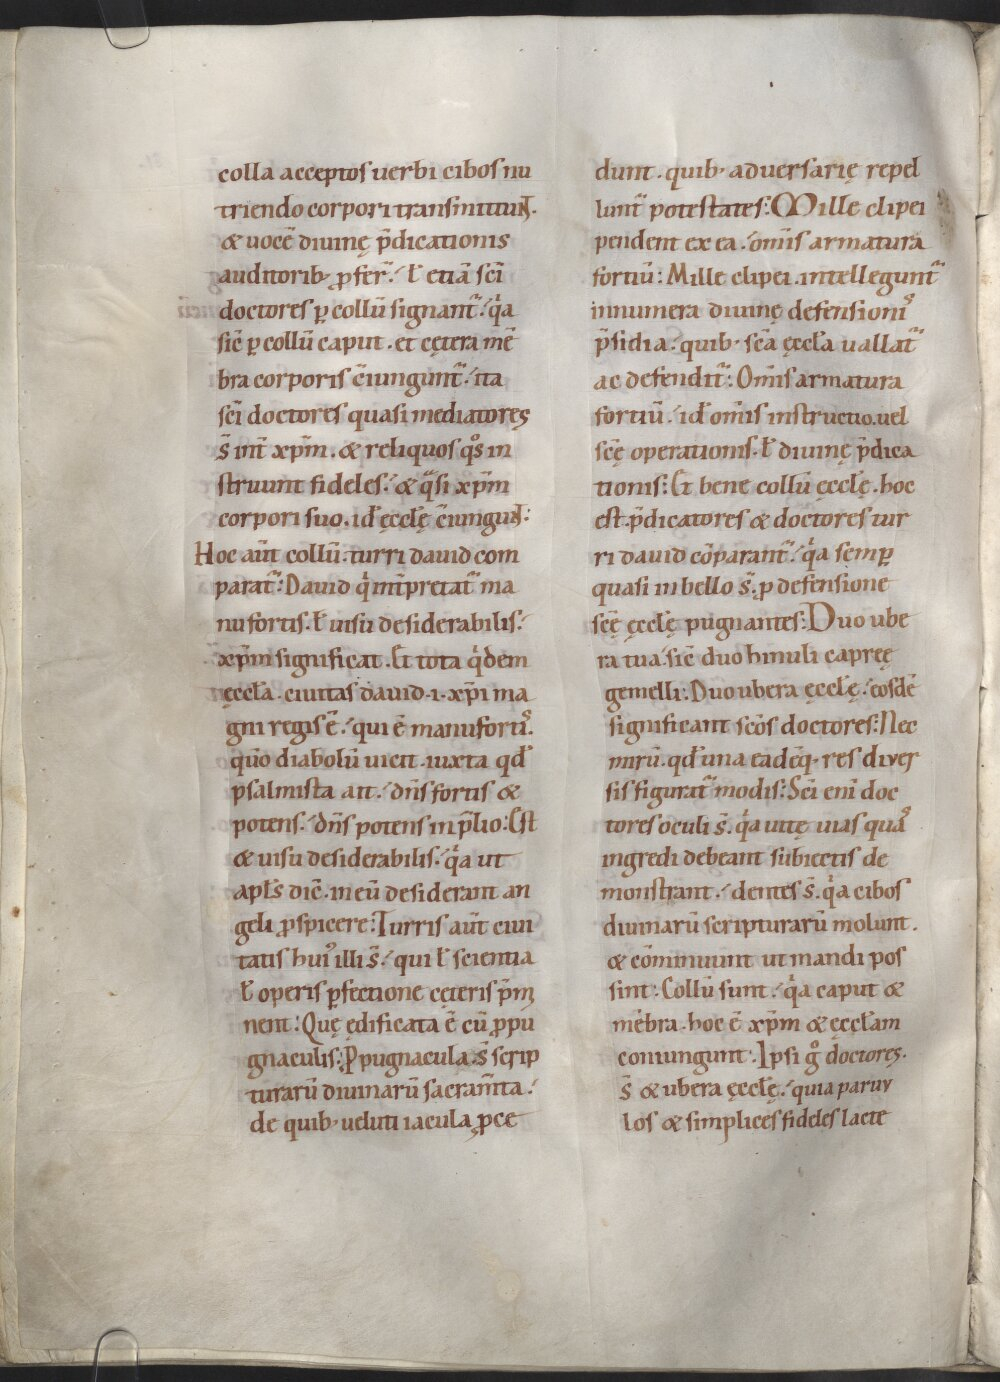 colla acceptos uerbi cibos nu
triendo corpori transmittunt.
& uocē diuinę p̄dicationis
auditorib; ꝓfert᷒. ł etiā sc̄i
doctores ꝑ collū signant᷒. qͥa
sic̄ ꝑ collū caput. et cętera mē
bra corporis c̄iungunt᷒. ita
sc̄i doctores quasi mediatores
s̄ int̄ xp̄m. & reliquos qͦs in
struunt fideles. & qͣsi xp̄m
corpori suo. id ęccłę c̄iungunt:
Hoc aūt collū turri dauid com
parat᷒: Dauid qͥ int̄pretat᷒ ma
nu fortis. ł uisu desiderabilis.
xp̄m significat. Et tota qͥdem
ęccła. ciuitas dauid .i. xp̄i ma
gni regis ē. qui ē manu fortis.
quō diabolū uicit. iuxta qd
psalmista ait. dn̄s fortis &
potens. dn̄s potens in p̄lio: Est
& uisu desiderabilis. qͥa ut
apłs dic̄. in eū desiderant an
geli ꝓspicere: Turris aūt ciui
tatis hui᷒ illi s̄. qui ł scientia
ł operis ꝑfectione cęteris p̄mi
nent: Quę ędificata ē cū ꝓpu
gnaculis: Ꝓpugnacula s̄ scrip
turarū diuinarū sacram̄ta.
de quib; ueluti iacula ꝓce
dunt. quib; aduersarię repel
lunt᷒ potestates: Mille clipei
pendent ex ea. omīs armatura
fortiū: Mille clipei. intellegunt᷒
innumera diuinę defensionis
p̄sidia. quib; sc̄a ęccła uallat᷒
ac defendit᷒: Omīs armatura
fortiū. id omīs instructio. uel
sc̄ę operationis. ł diuinę p̄dica
tionis: Et bene collū ęccłę. hoc
est. p̄dicatores & doctores tur
ri dauid cōparant᷒. qͥa semꝑ
quasi in bello s̄. ꝓ defensione
sc̄ę ęccłę pugnantes: Duo ube
ra tua. sic̄ duo hinuli capreę
gemelli: Duo ubera ęccłę. eosdē
significant sc̄os doctores: Nec
mirū. qd una eadēq; res diver
sis figurat᷒ modis: Sc̄i enī doc
tores oculi s̄. qͥa uitę uias quas
ingredi debeant subiectis de
monstrant. dentes s̄. qͥa cibos
diuinarū scripturarū molunt.
& cōminuunt ut mandi pos
sint: Collū sunt. qͥa caput &
mēbra. hoc ē xp̄m & ęccłam
coniungunt: Ipsi gͦ doctores.
s̄ & ubera ęccłę. quia paruu
los & simplices fideles lacte